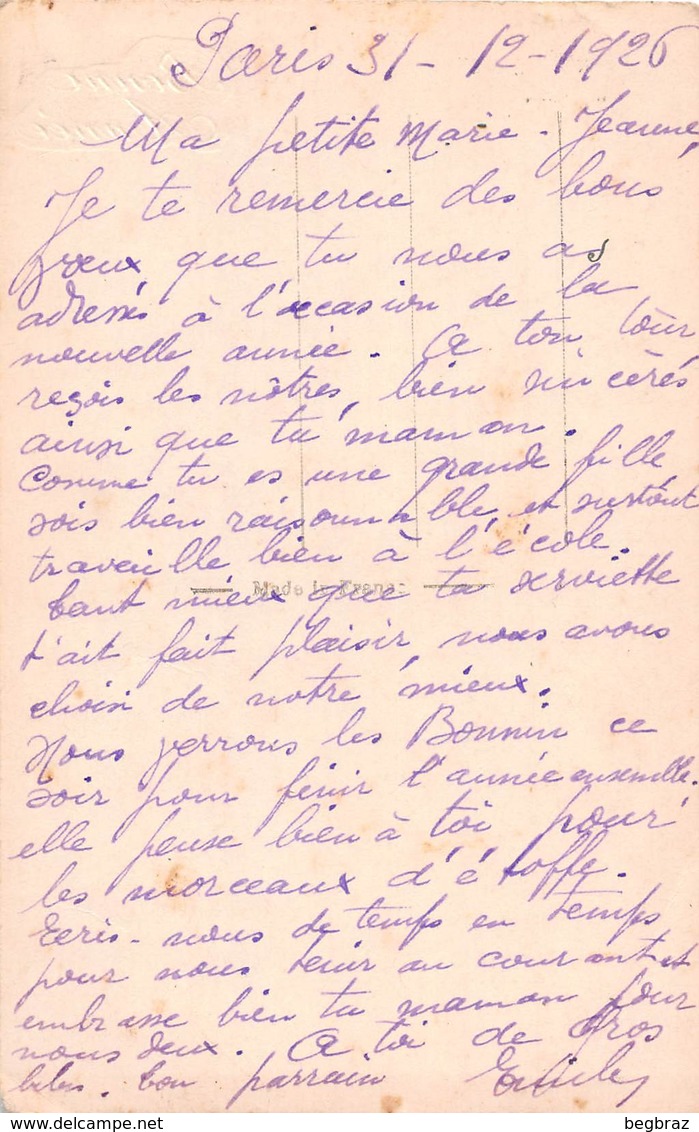 Bonne
Année
Paris 31-12-1926
Ma petite Marie-Jeanne,
Je te remercie des bons
vœux que tu nous as
adressés à l'occasion de la
nouvelle année. A ton tour
reçois les nôtres, bien sincères
ainsi que ta maman.
Comme tu es une grande fille
sois bien raisonnable, et surtout
travaille bien à l'école.
Made in France
Tant mieux que ta serviette
t'ait fait plaisir, nous avons
choisi de notre mieux.
Nous verrons les Bonnin ce
soir pour finir l'année ensemble.
elle pense bien à toi pour
les morceaux d'étoffe.
Ecris-nous de temps en temps
pour nous tenir au courant et
embrasse bien ta maman pour
nous deux. A toi de gros
bibs. Ton parrain Emile
begbraz